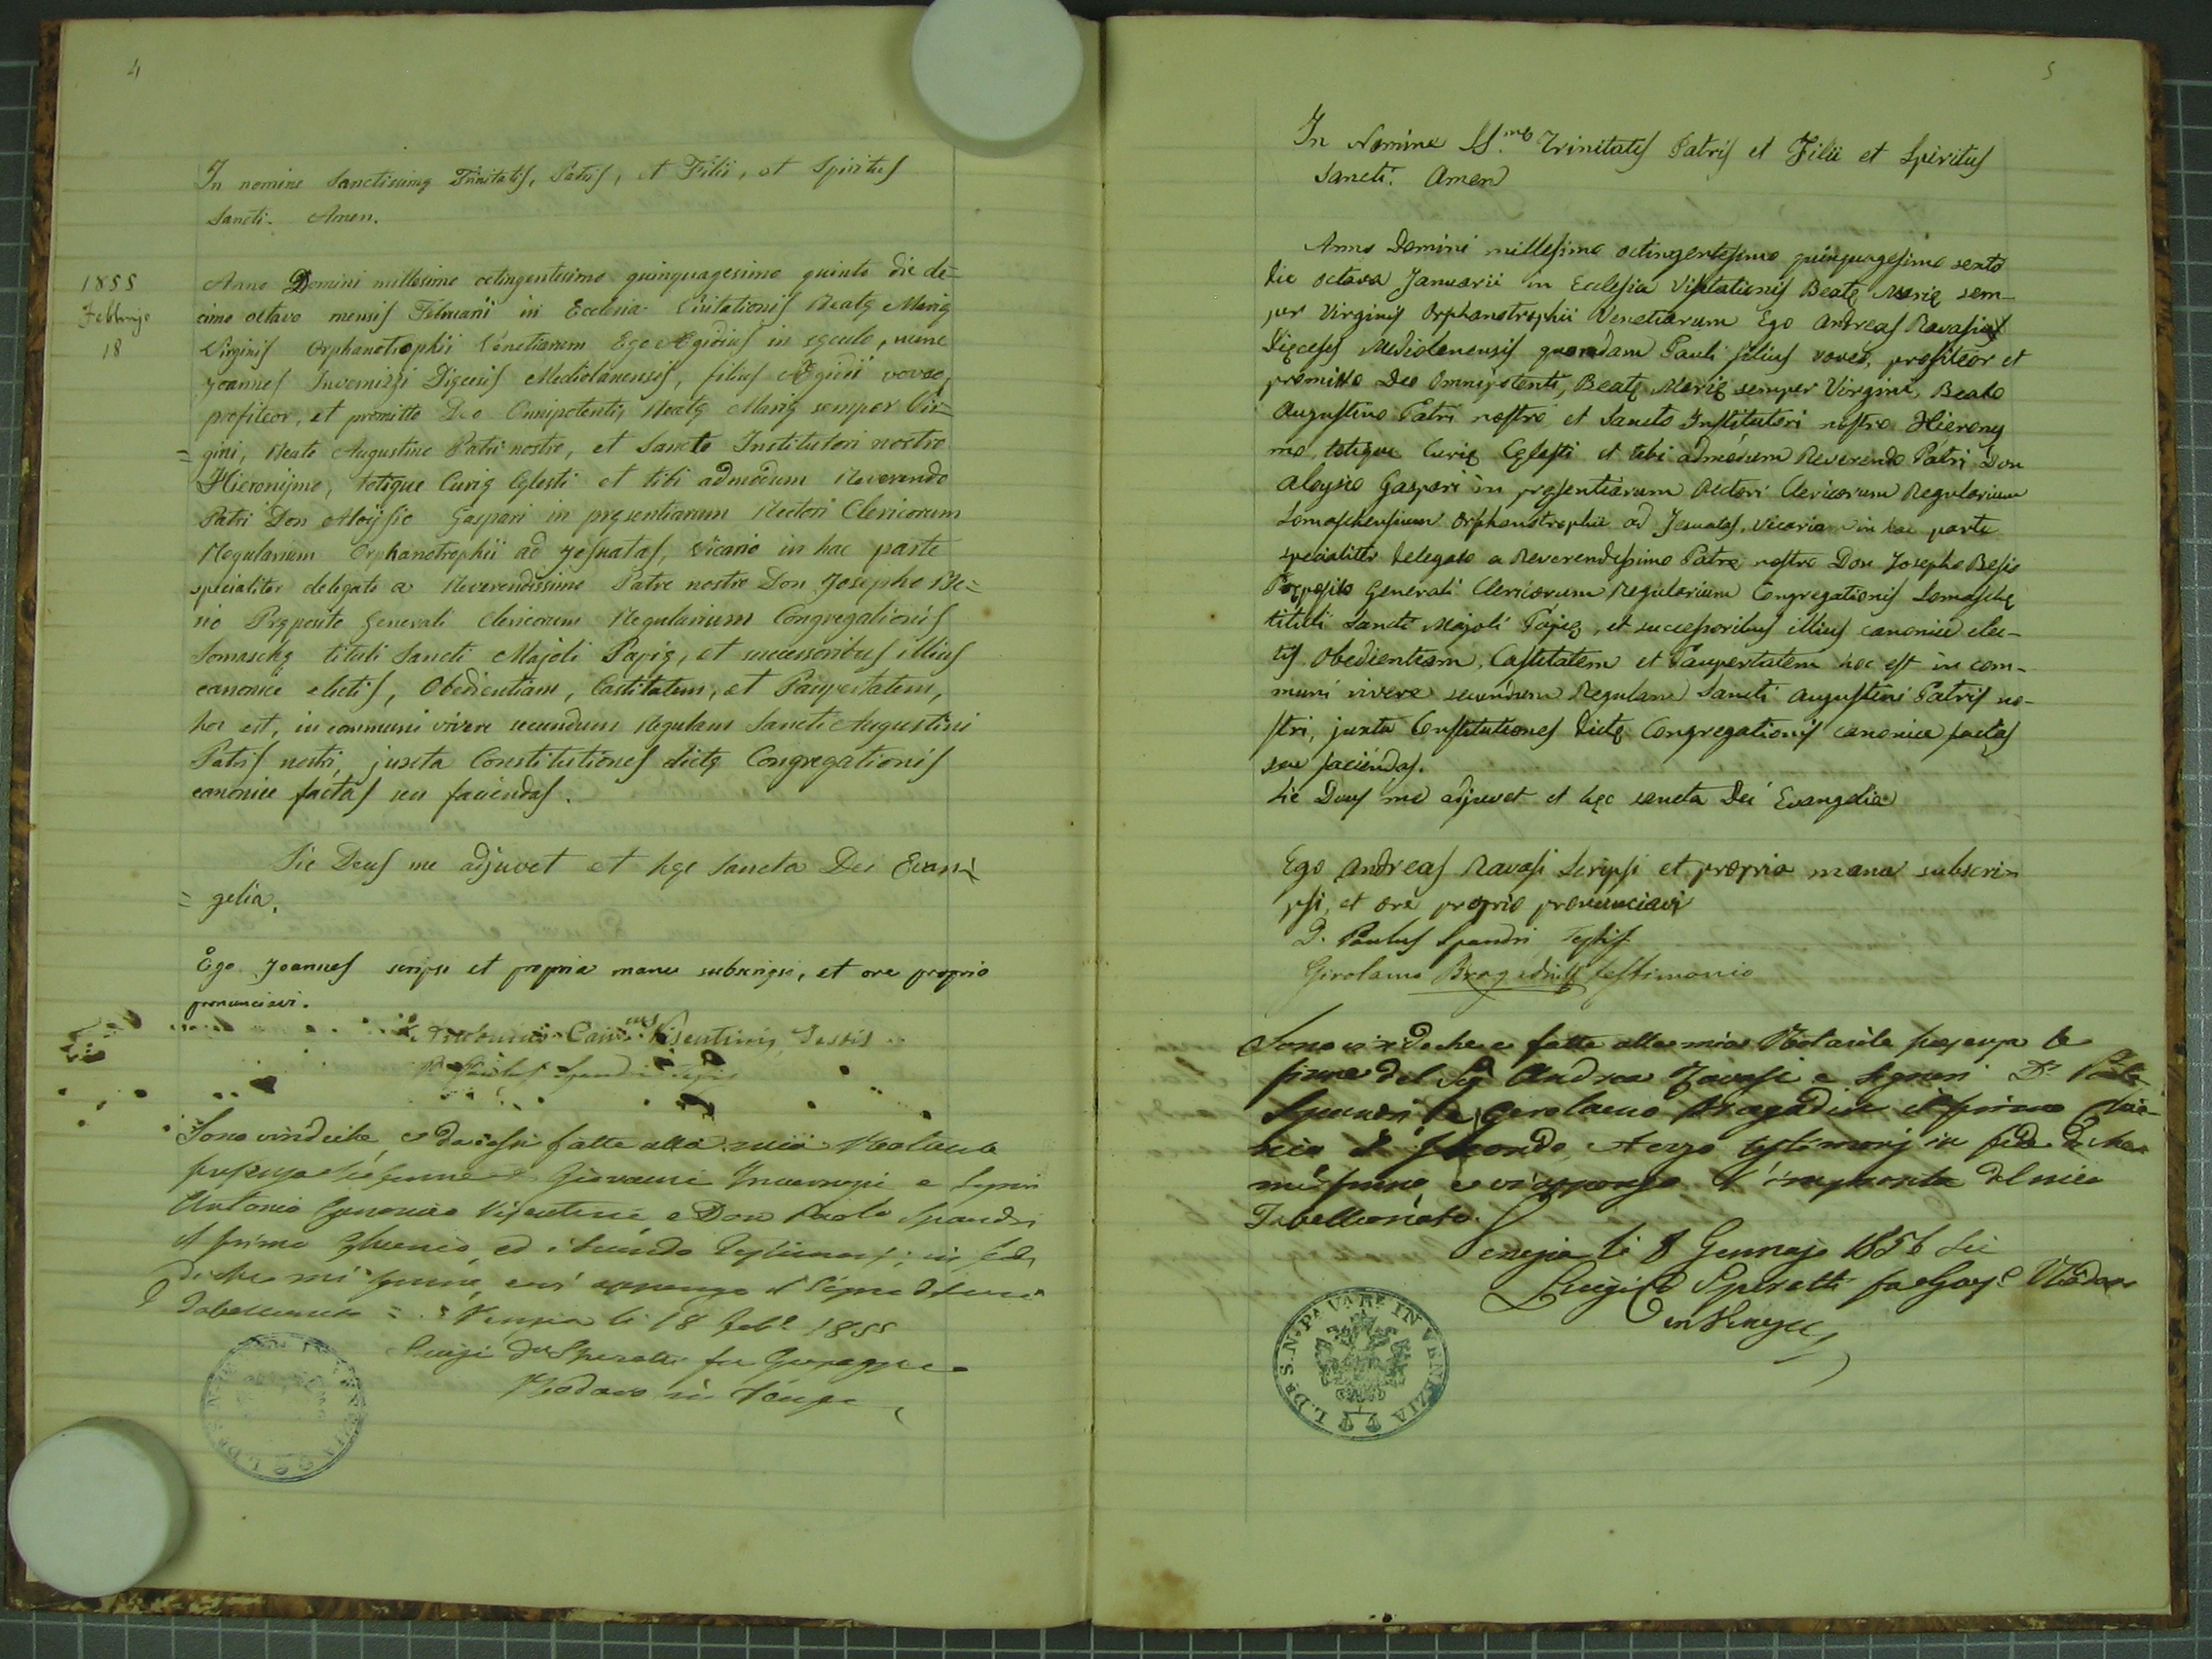 4
In nomine Sanctissimę Trinitatis, Patris, et Filii, et Spiritus
Sancti. Amen.
1855
Febbrajo
18
Anno Domini millesimo octingentesimo quinquagesimo quinto die de=
cimo octavo mensis Februarii in Ecclesia Visitationis Beatę Marię
Virginis Orphanotrophii Venetiarum Ego Ægidius in sęculo, nunc
Joannes Invernizzi Digcesis Mediolanensis, filius Ægidii voveo,
profiteor, et promitto Deo Omnipotenti, Beatę Marię semper Vir=
=gini, Beato Augustino Patri nostro, et Sancto Institutori nostro
Hieronÿmo, totique Curię Cęlesti et tibi admodum Reverendo
Patri Don Aloÿsio Gaspari in pręsentiarum Rectori Clericorum
Regularium Orphanotrophii ad Jesuatas, Vicario in hac parte
specialiter delegato a Reverendissimo Patre nostro Don Josepho Be=
sio Pręposito Generali Clericorum Regularium Congregationis
Somaschę tituli Sancti Majoli Papię, et successoribus illius
canonice electis, Obedientiam, Castitatem, et Paupertatem,
hoc est, in communi vivere secundum Regulam Sancti Augustini
Patris nostri, juxta Constitutiones dictę Congregationis
canonice factas seu faciendas.
Sic Deus me adjuvet et hęc Sancta Dei Evan=
=gelia.
Ego Joannes scripsi et propria manu subscripsi, et ore proprio
pronunciavi.
Antonius Can.cus Visentini Testis
P. Paulus Spandri Testis
Sono vindiche, e da essi fatte alla mia Notarile
presenza le firme di Giovanni Invernizzi e Signori
Antonio Canonico Visentini e Don Paolo Spandri
il primo e il secondo Testimonj; in fede
di che mi firmo, e vi appongo il segno del mio
Tabellionato = Venezia li 18 Feb.o 1855
Luigi Dr Speratti fu Giuseppe
Notaro in Venezia
5
In Nomine SS.mę Trinitatis Patris et Filii et Spiritus
Sancti. Amen
Anno Domini millesimo octingentesimo quinquagesimo sexto
die octava Januarii in Ecclesia Visitationis Beatę Marię sem-
per Virginis Orphanotrophii Venetiarum Ego Andreas Ravasi
Digcesis Mediolanensis quondam Pauli filius voveo, profiteor et
promitto Deo Omnipotenti, Beatę Marię semper Virgini, Beato
Augustino Patri nostro et Sancto Institutori nostro Hierony
mo, totique Curię Cęlesti et tibi admodum Reverendo Patri Don
Aloysio Gaspari in pręsentiarum Rectori Clericorum Regularium
Somaschensium Orphanotrophii ad Jesuatas, Vicario in hac parte
specialiter delegato a Reverendissimo Patre nostro Don Josepho Besio
Pręposito Generali Clericorum Regularium Congregationis Somaschę
tituli Sancti Majoli Papię, et successoribus illius canonice elec-
tis Obedientiam, Castitatem et Paupertatem hoc est in com-
muni vivere secundum Regulam Sancti Augustini Patris no-
stri, juxta Constitutiones dictę Congregationis canonice factas
seu faciendas.
Sic Deus me adjuvet et hęc sancta Dei Evangelia
Ego Andreas Ravasi Scripsi et propria manu subscri=
psi, et ore proprio pronunciavi
D. Paulus Spandri Testis
Girolamo Bragadin testimonio
Sono vindiche e fatte alla mia Notarile presenza le
firme del Sig. Andrea Ravasi e Signori Dn Paolo
Spandri e Gerolamo Bragadin il primo
il secondo e terzo testimonj in fede di che
mi firmo, e vi appongo l'impronta del mio
Tabellionato.
Venezia li 8 Gennajo 1856 sei
Luigi Dr Speratti fu Gius.e Notaro
in Venezia
L. Dr S. N. PAVARE IN VENEZIA